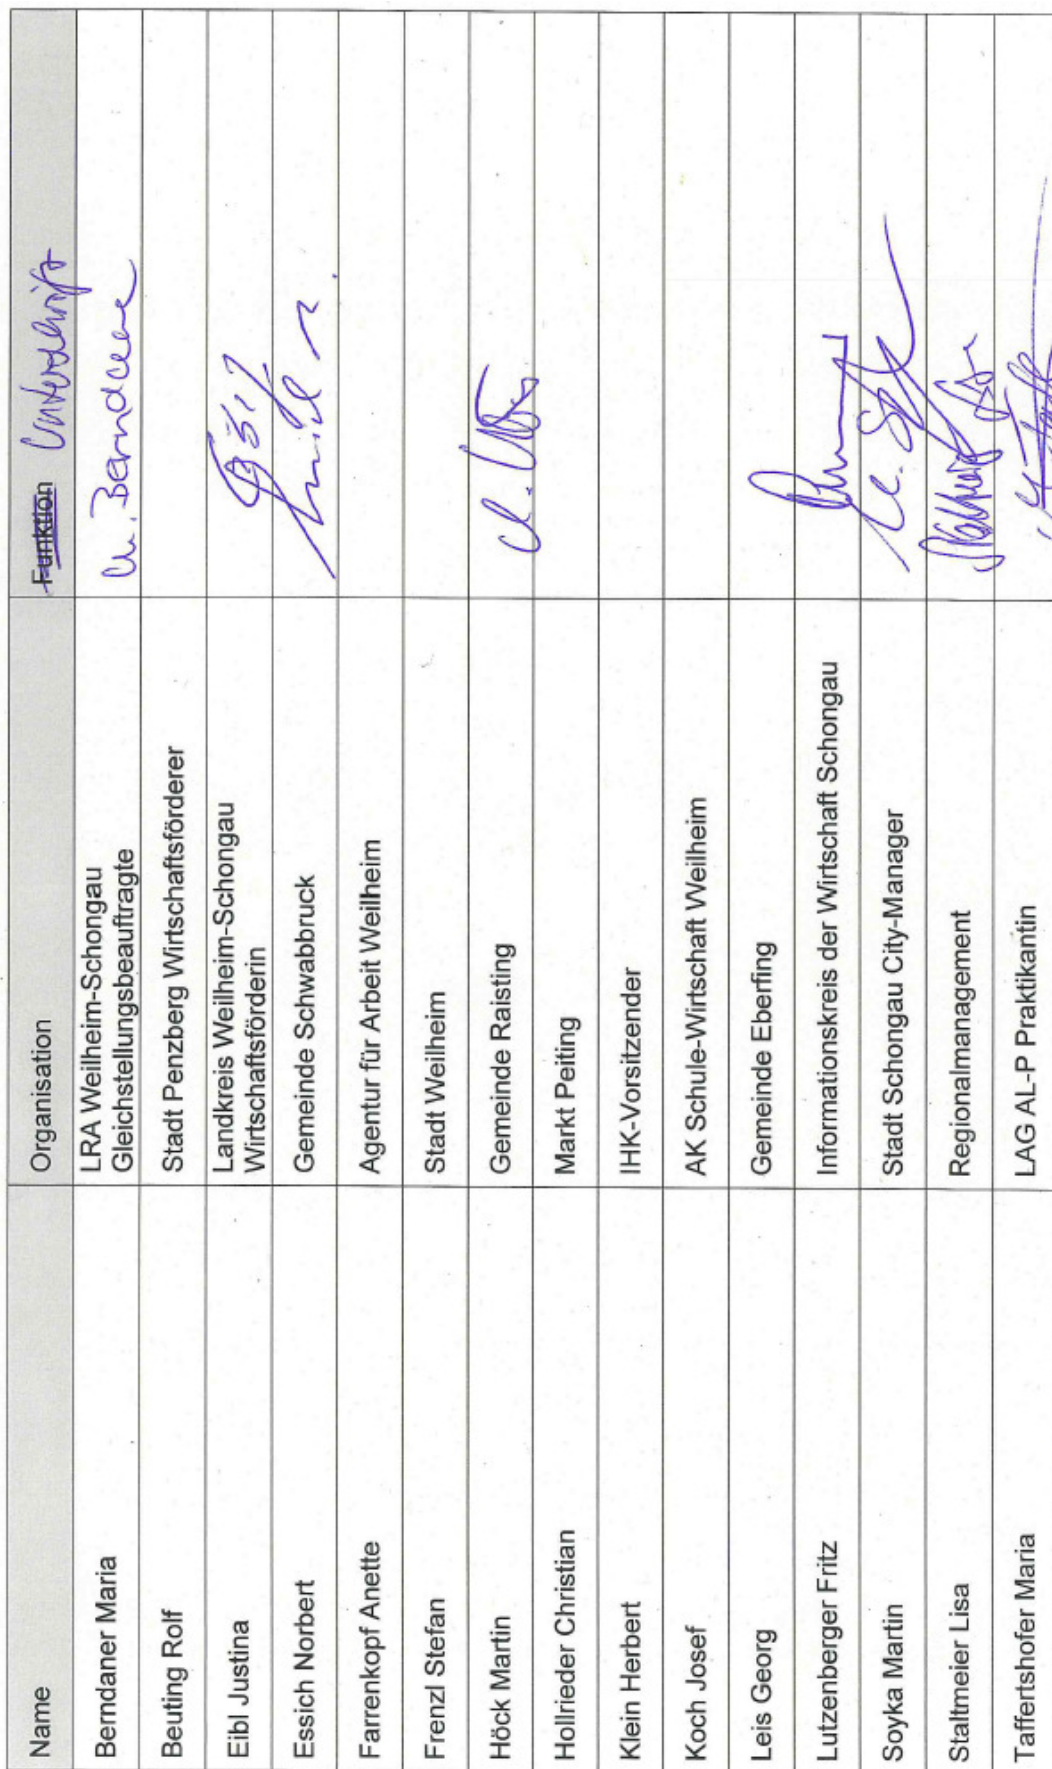 Name Organisation Funktion Unterschrift
Berndaner Maria LRA Weilheim-Schongau
Gleichstellungsbeauftragte M. Berndaner
Beuting Rolf Stadt Penzberg Wirtschaftsförderer
Eibl Justina Landkreis Weilheim-Schongau
Wirtschaftsförderin
Essich Norbert Gemeinde Schwabbruck
Farrenkopf Anette Agentur für Arbeit Weilheim
Frenzl Stefan Stadt Weilheim
Höck Martin Gemeinde Raisting
Hollrieder Christian Markt Peiting
Klein Herbert IHK-Vorsitzender
Koch Josef AK Schule-Wirtschaft Weilheim
Leis Georg Gemeinde Eberfing
Lutzenberger Fritz Informationskreis der Wirtschaft Schongau
Soyka Martin Stadt Schongau City-Manager
Staltmeier Lisa Regionalmanagement
Taffertshofer Maria LAG AL-P Praktikantin